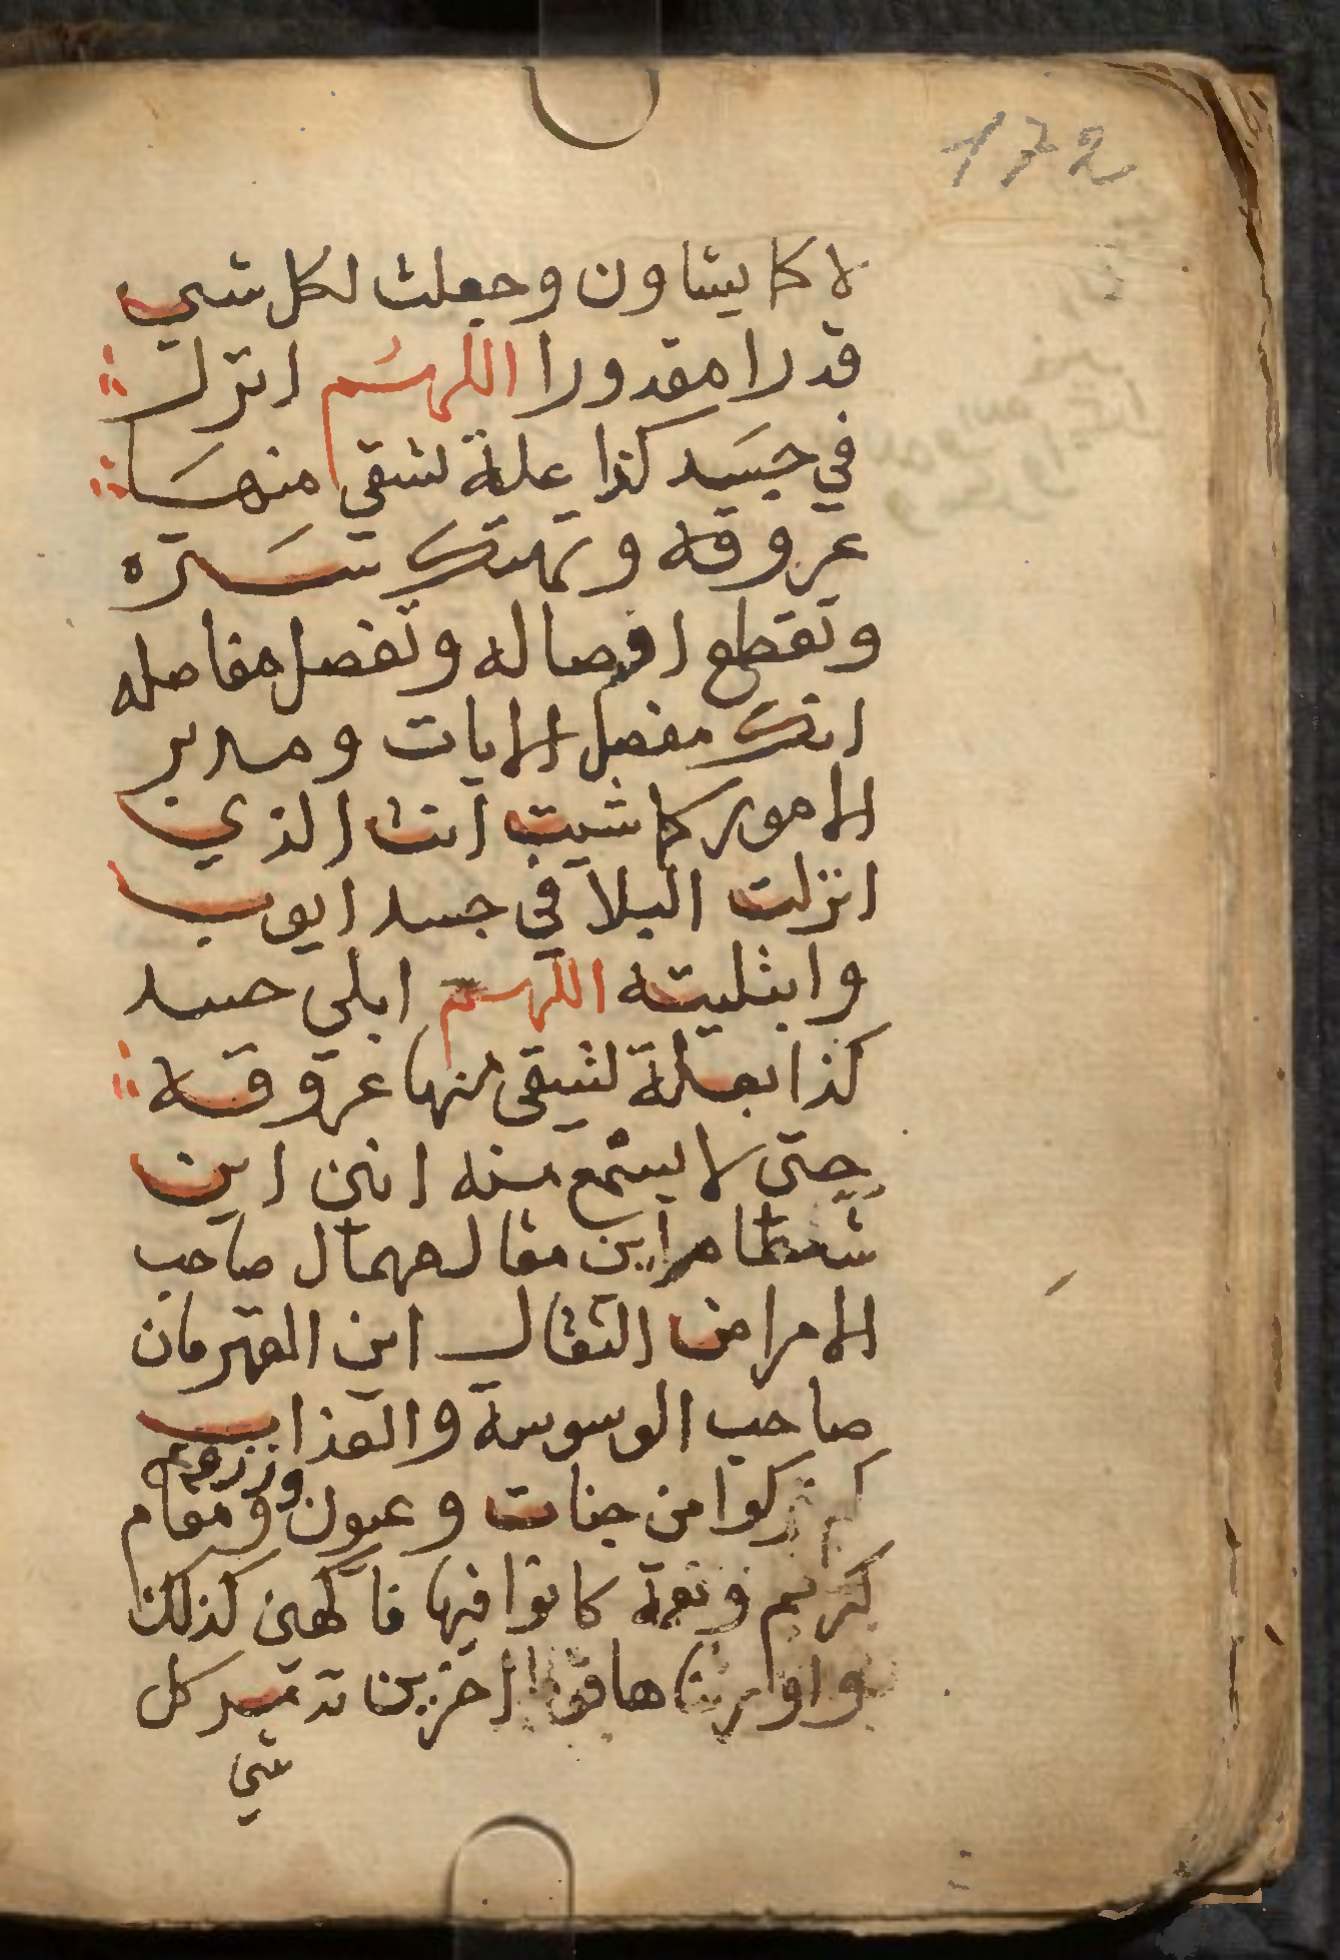 172
لا كما يشاون وجعلت لكل شي
قدرا مقدورا اللهم انزل
في جسد كذا علة تشقي منها
عروقه وتهتك ستره
وتقطع اوصاله وتفصل مفاصله
انك مفصل الايات ومدبر
الامور كما شيت انت الذي
انزلت البلا في جسد ايوب
وابتليته اللهم ابلي جسد
كذا بعلة تشقي منها عروقه
حتي لا يسمع منه انين اين
اين مقال همال صاحب
الامراض الثقال اين القهرمان
صاحب الوسوسة والعذاب
كم تركوا من جنات وعيون وزروع ومقام
كريم ونعمة كانوا فيها فاكهين كذلك
واورثناها قوما اخرين تدمير كل
شي